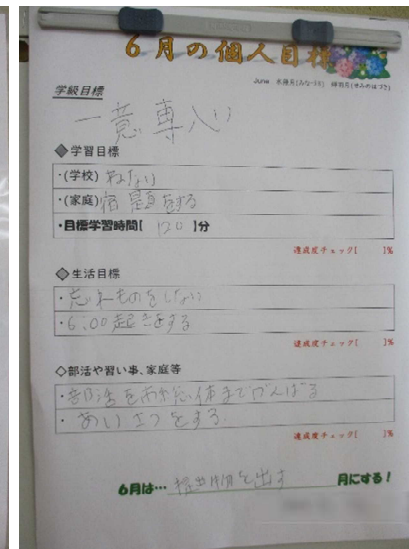 6月の個人目標
June 水無月(みなづき) 蝉羽月(せみのはづき)
学級目標
一意専心
◆学習目標
・(学校) ねない
・(家庭) 宿題をする
・目標学習時間[ 120 ]分
達成度チェック[ ]%
◆生活目標
・忘れものをしない
・6:00起きをする
達成度チェック[ ]%
◇部活や習い事、家庭等
・部活を市総体までがんばる
・あいさつをする
達成度チェック[ ]%
6月は… 提出物を出す 月にする!